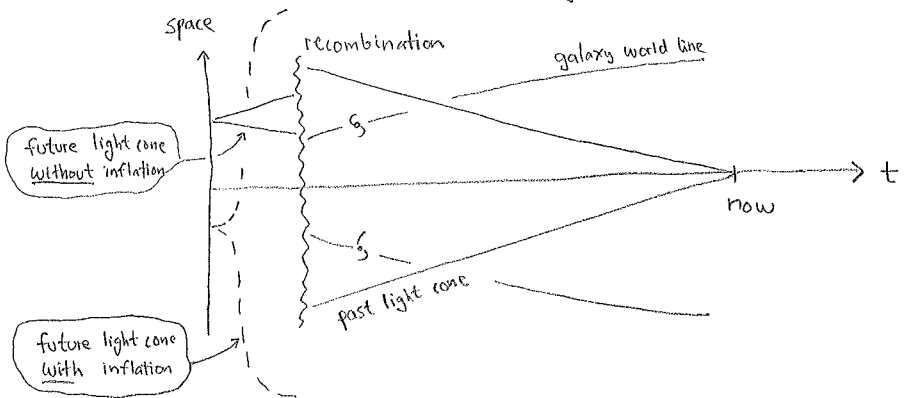 space
recombination
galaxy world line
future light cone
without inflation
t
now
past light cone
future light cone
with inflation